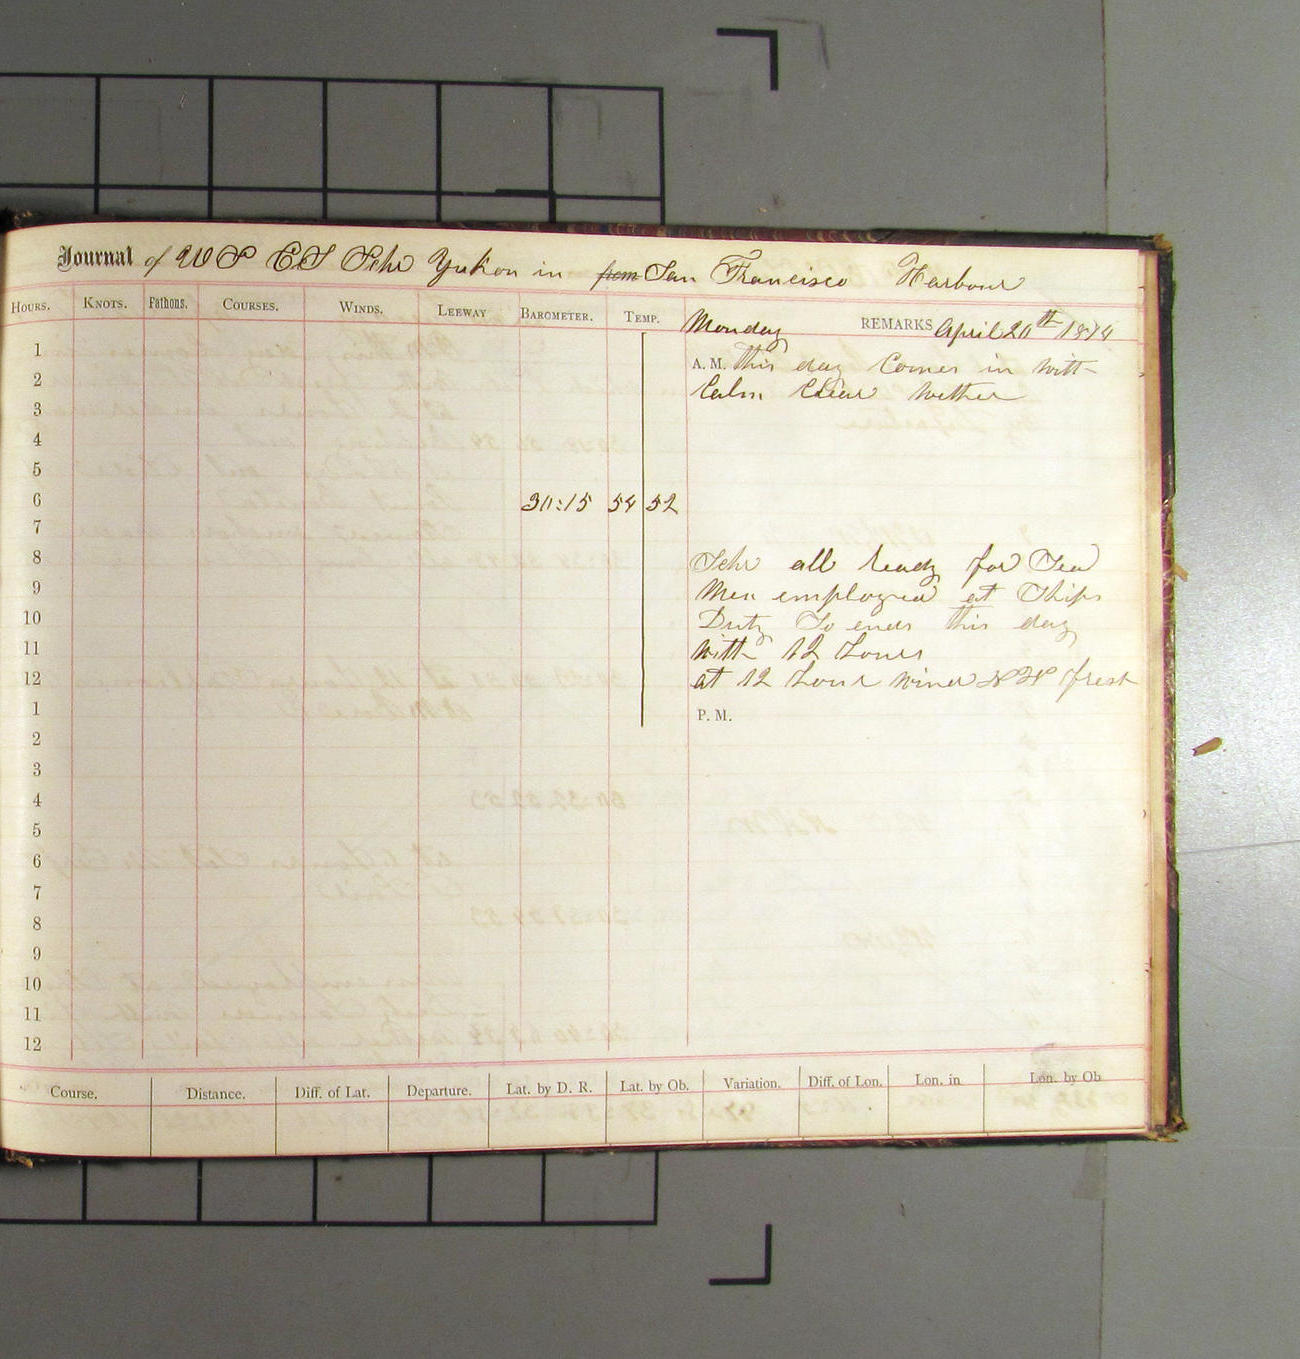 Journal of U S C S Schr Yukon in from San Francisco Harbour
HOURS. KNOTS. Fathoms. COURSES. WINDS. LEEWAY BAROMETER. TEMP. Monday REMARKS April 20th 1874
1
A. M. This day Comes in with
2
Calm Clear wether
3
4
5
6 30:15 54 52
7
8 Schr all ready for Sea
9 Men employed at Ships
10 Duty So ends this day
11 with 12 hours
12 at 12 hour wind NW fresh
1 P. M.
2
3
4
5
6
7
8
9
10
11
12
Course. Distance. Diff. of Lat. Departure. Lat. by D. R. Lat. by Ob. Variation. Diff. of Lon. Lon. in Lon. by Ob